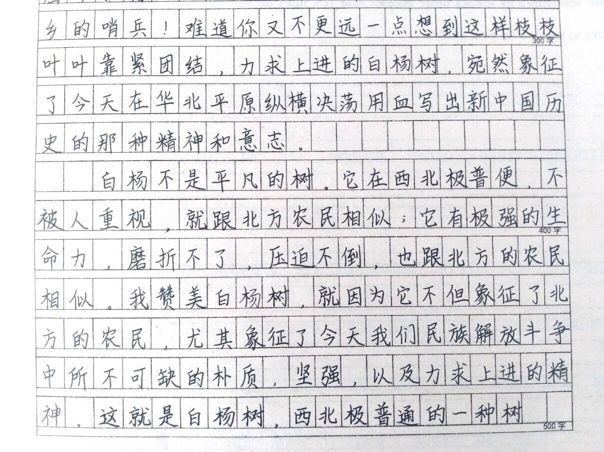 乡的哨兵！难道你又不更远一点想到这样枝枝
300字
叶叶靠紧团结，力求上进的白杨树，宛然象征
了今天在华北平原纵横决荡用血写出新中国历
史的那种精神和意志。
白杨不是平凡的树。它在西北极普便，不
被人重视，就跟北方农民相似；它有极强的生
400字
命力，磨折不了，压迫不倒，也跟北方的农民
相似。我赞美白杨树，就因为它不但象征了北
方的农民，尤其象征了今天我们民族解放斗争
中所不可缺的朴质，坚强，以及力求上进的精
神。这就是白杨树，西北极普通的一种树
500字